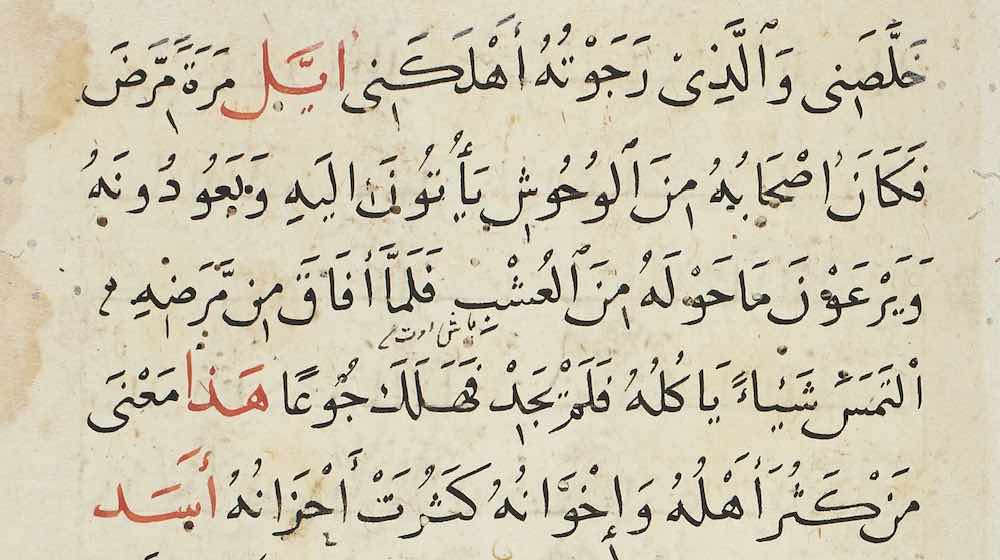 خَلَّصَنِى وَٱلَّذِىْ رَجَوْتُهُ أَهْلَكَنِى ايَّل مَرَةً مَّرَّضَ
فَكَانَ اصْحَابُهُ مِنَ ٱلْوُحُوشِ يَأْتُونَ الَيهِ وَيَعُودُونَهُ
وَيَرْعَوْنَ مَا حَوْلَهُ مِنَ ٱلْعُشْبِ فَلَمَّا أَفَاقَ مِن مَّرَضِهِ
ٱلْتَمَسَ شَيْاءً يَاكُلُهُ فَلَمْ يَجِدْ فَهَلَكَ جُوعًا هَذا مَعْنَى
مَنْ كَثُرَ أَهْلُهُ وَإِخْوَانُهُ كَثُرَتْ أَحْزَانُهُ أَسَد